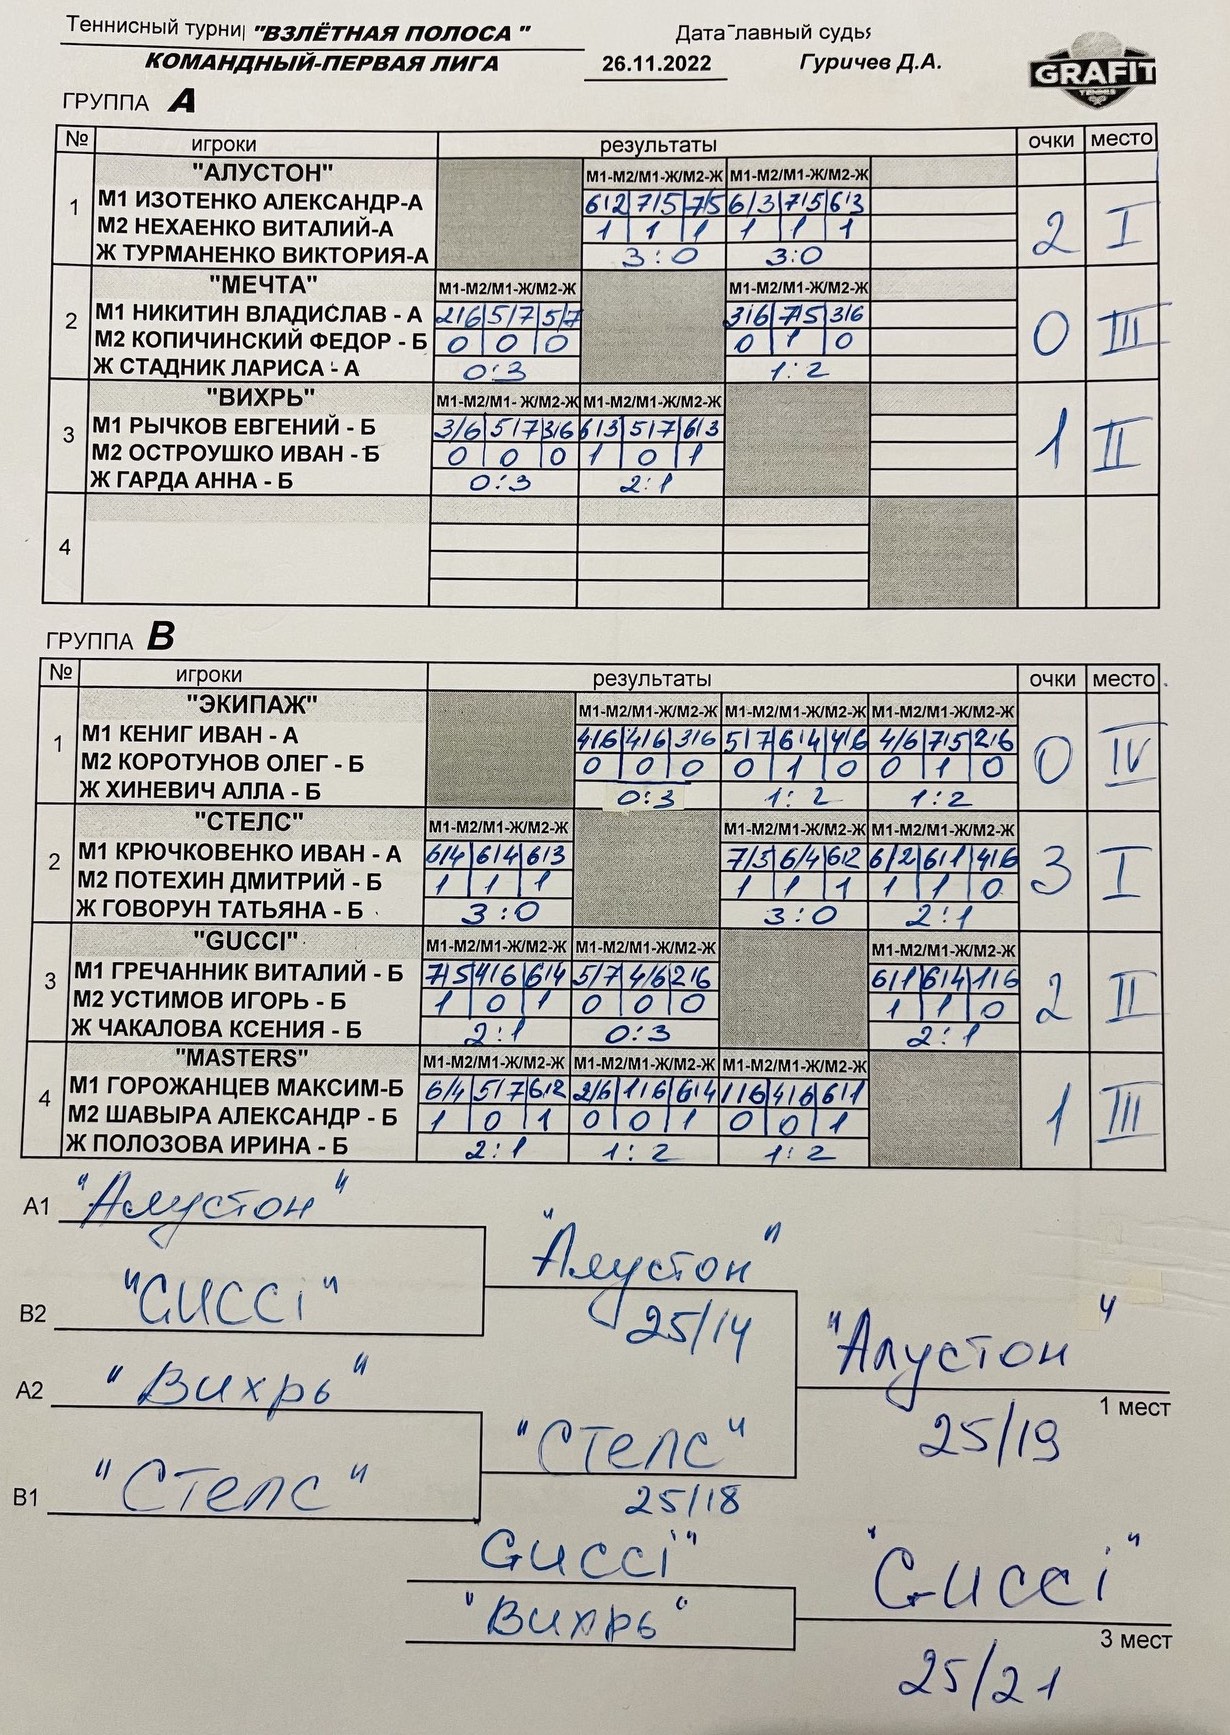 Теннисный турни "ВЗЛЁТНАЯ ПОЛОСА" Дата лавный судья
КОМАНДНЫЙ-ПЕРВАЯ ЛИГА 26.11.2022 Гуричев Д.А.
GRAFIT
TENNIS
ГРУППА А
№ игроки результаты очки место
"АЛУСТОН" М1-М2/М1-Ж/М2-Ж М1-М2/М1-Ж/М2-Ж
1 М1 ИЗОТЕНКО АЛЕКСАНДР-А 6/2 7/5 7/5 6/3 7/5 6/3 2 I
М2 НЕХАЕНКО ВИТАЛИЙ-А 1 1 1 1 1 1
Ж ТУРМАНЕНКО ВИКТОРИЯ-А 3:0 3:0
"МЕЧТА" М1-М2/М1-Ж/М2-Ж М1-М2/М1-Ж/М2-Ж
2 М1 НИКИТИН ВЛАДИСЛАВ - А 2/6 5/7 5/7 3/6 7/5 3/6 0 III
М2 КОПИЧИНСКИЙ ФЕДОР - Б 0 0 0 0 1 0
Ж СТАДНИК ЛАРИСА - А 0:3 1:2
"ВИХРЬ" М1-М2/М1- Ж/М2-Ж М1-М2/М1-Ж/М2-Ж
3 М1 РЫЧКОВ ЕВГЕНИЙ - Б 3/6 5/7 3/6 6/3 5/7 6/3 1 II
М2 ОСТРОУШКО ИВАН - Б 0 0 0 1 0 1
Ж ГАРДА АННА - Б 0:3 2:1
4
ГРУППА В
№ игроки результаты очки место
"ЭКИПАЖ" М1-М2/М1-Ж/М2-Ж М1-М2/М1-Ж/М2-Ж М1-М2/М1-Ж/М2-Ж
1 М1 КЕНИГ ИВАН - А 4/6 4/6 3/6 5/7 6/4 4/6 4/6 7/5 2/6 0 IV
М2 КОРОТУНОВ ОЛЕГ - Б 0 0 0 0 1 0 0 1 0
Ж ХИНЕВИЧ АЛЛА - Б 0:3 1:2 1:2
"СТЕЛС" М1-М2/М1-Ж/М2-Ж М1-М2/М1-Ж/М2-Ж М1-М2/М1-Ж/М2-Ж
2 М1 КРЮЧКОВЕНКО ИВАН - А 6/4 6/4 6/3 7/5 6/4 6/2 6/2 6/1 4/6 3 I
М2 ПОТЕХИН ДМИТРИЙ - Б 1 1 1 1 1 1 1 1 0
Ж ГОВОРУН ТАТЬЯНА - Б 3:0 3:0 2:1
"GUCCI" М1-М2/М1-Ж/М2-Ж М1-М2/М1-Ж/М2-Ж М1-М2/М1-Ж/М2-Ж
3 М1 ГРЕЧАННИК ВИТАЛИЙ - Б 7/5 4/6 6/4 5/7 4/6 2/6 6/1 6/4 1/6 2 II
М2 УСТИМОВ ИГОРЬ - Б 1 0 1 0 0 0 1 1 0
Ж ЧАКАЛОВА КСЕНИЯ - Б 2:1 0:3 2:1
"MASTERS" М1-М2/М1-Ж/М2-Ж М1-М2/М1-Ж/М2-Ж М1-М2/М1-Ж/М2-Ж
4 М1 ГОРОЖАНЦЕВ МАКСИМ-Б 6/4 5/7 6/2 2/6 1/6 6/4 1/6 4/6 6/1 1 III
М2 ШАВЫРА АЛЕКСАНДР - Б 1 0 1 0 0 1 0 0 1
Ж ПОЛОЗОВА ИРИНА - Б 2:1 1:2 1:2
А1 "Алустон"
"Алустон"
В2 "GUCCi"
25/14
"Алустон"
А2 "Вихрь"
1 мест
25/19
"Стелс"
В1 "Стелс"
25/18
Gucci"
"Gucci"
"Вихрь"
3 мест
25/21